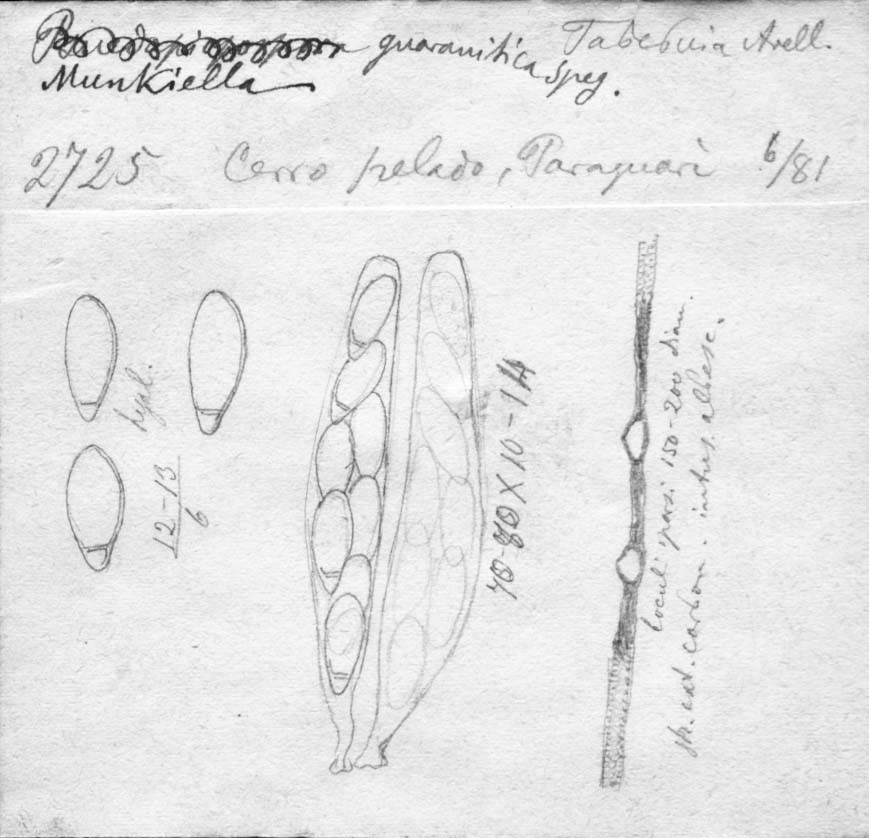 guaranitica Speg. Tabebuia Avell.
Munkiella
2725 Cerro pelado, Paraguari 6/81
hyal.
12-13
6
70-80 X 10-14
loculi sparsi 150-200 diam.
carbon. intus albesc.